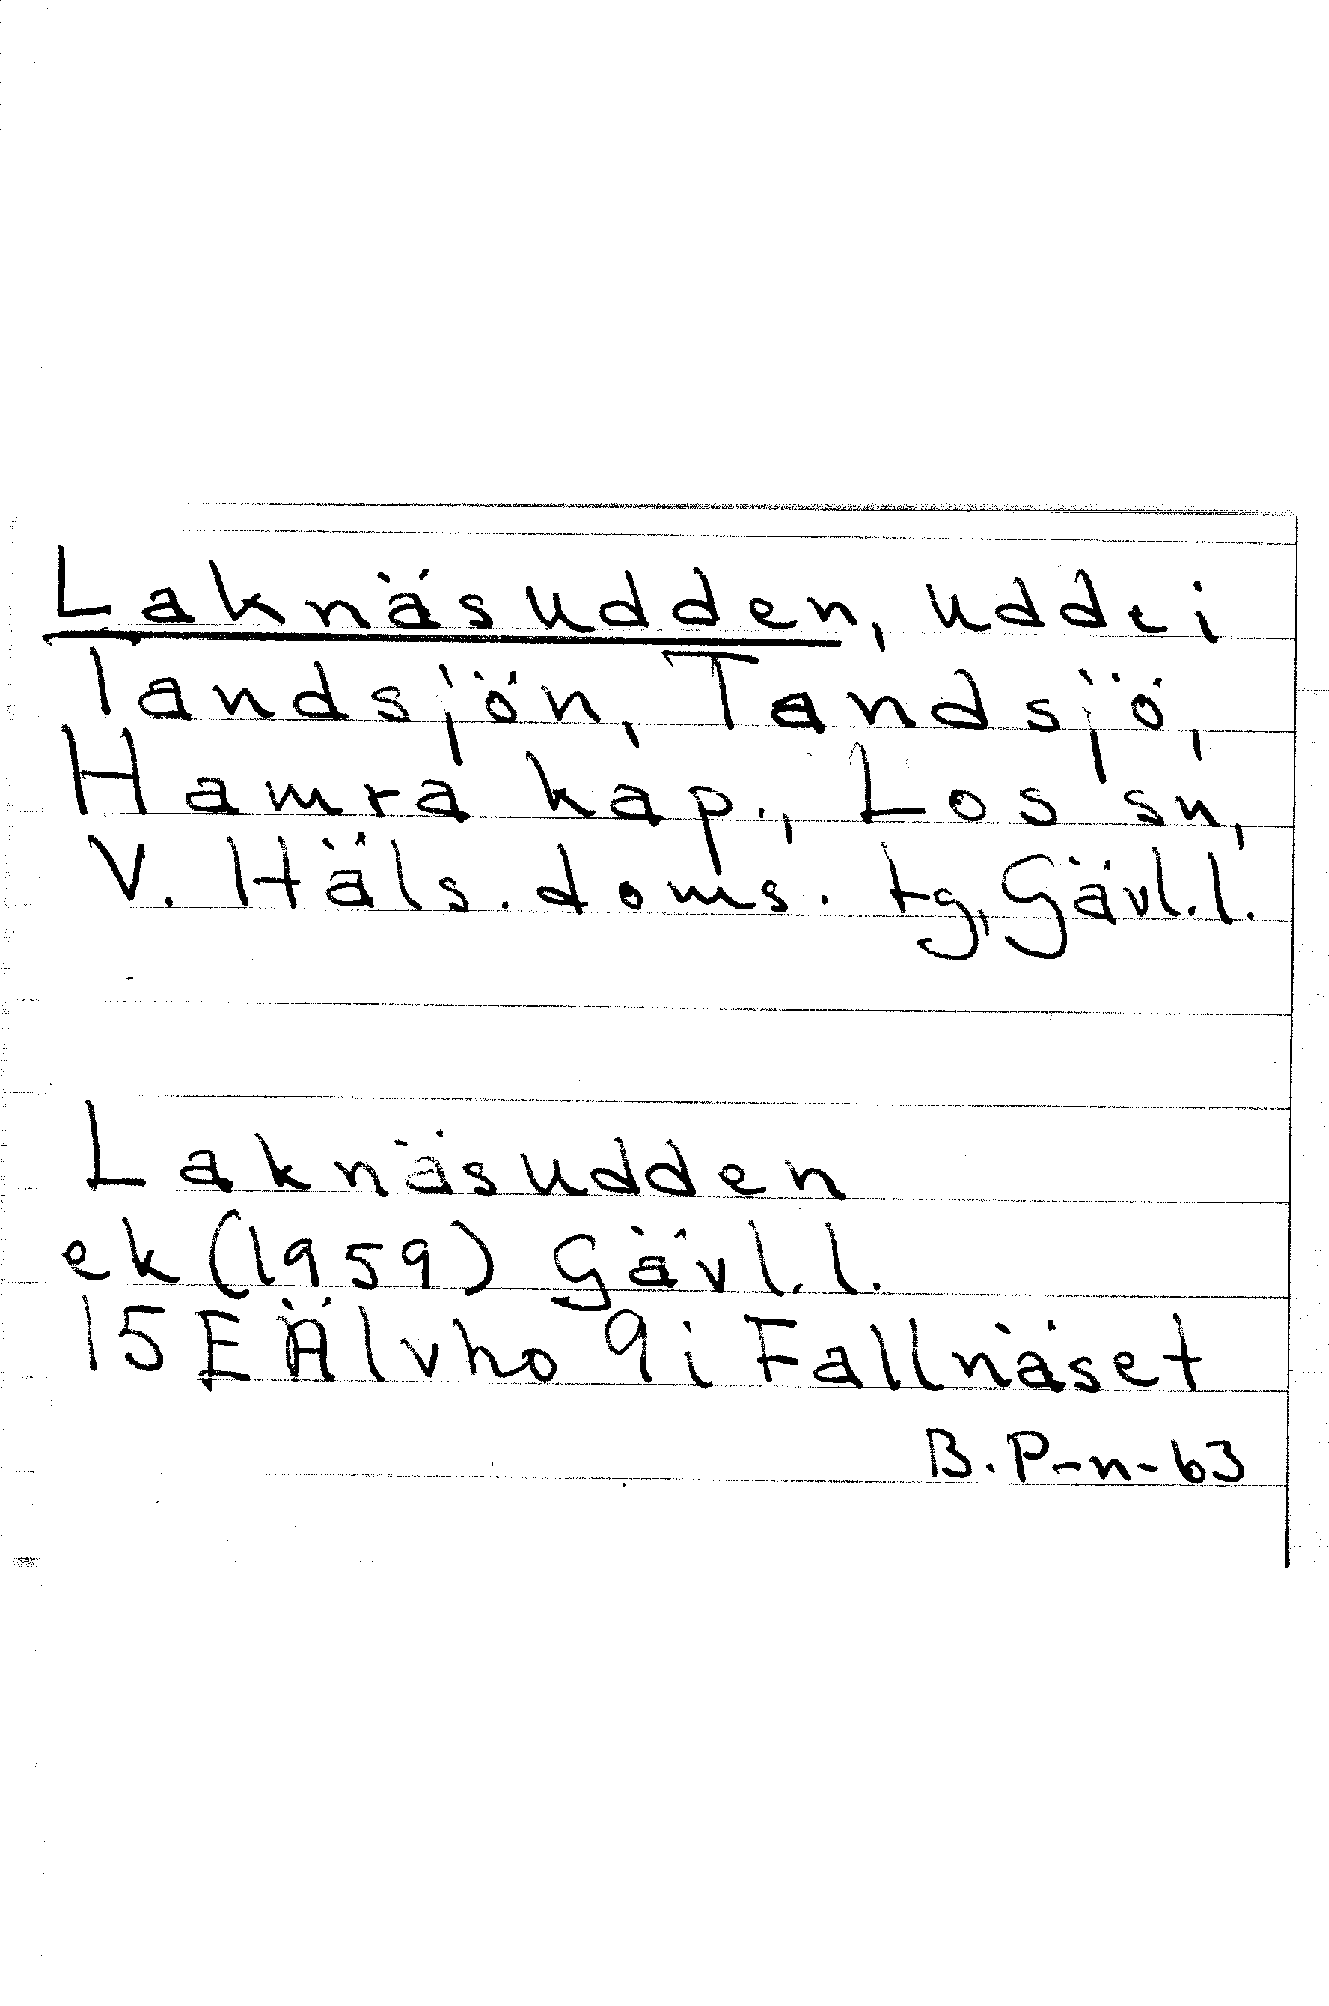 Laknäsudden, udde i
Tandsjön, Tandsjö,
Hamra kap., Los sn,
V. Häls. doms. tg, Gävl.l.
Laknäsudden
ek (1959) Gävl.l.
15 E Älvho 9i Fallnäset
B. P-n-63